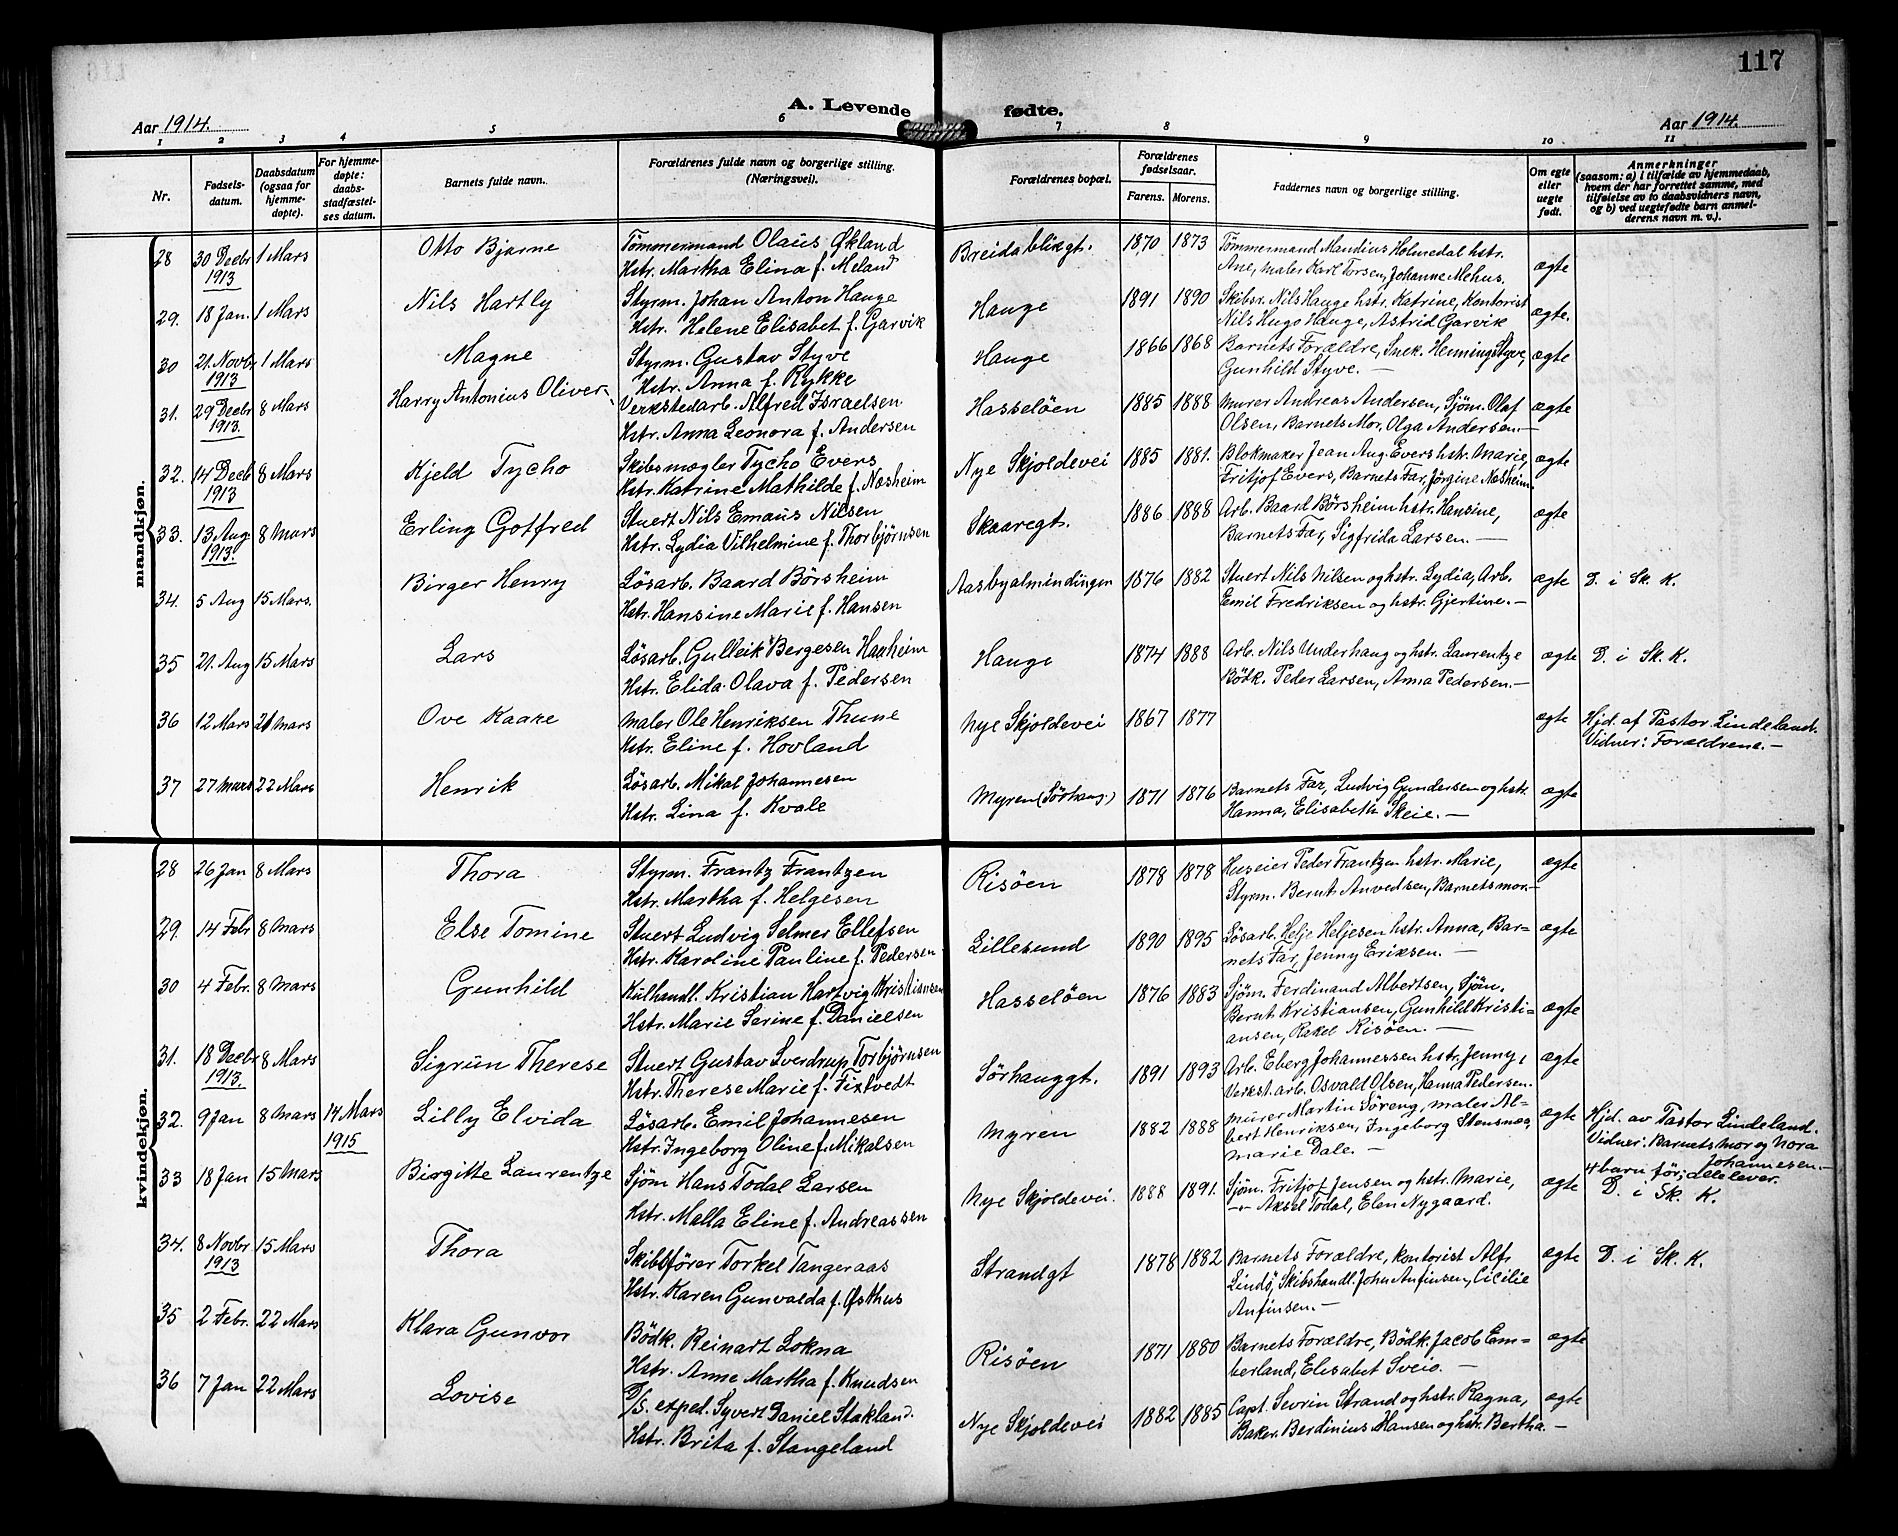 117
A. Levende fødte.
Aar 1914. Aar 1914.
1 2 3 4 5 6 7 8 9 10 11
Nr. Fødsels-datum. Daabsdatum (ogsaa for hjemme-døpte). For hjemme-døpte: daabs-stadfæstel-ses datum. Barnets fulde navn. Forældrenes fulde navn og borgerlige stilling. (Næringsvei). Forældrenes bopæl. Forældrenes fødselsaar. Farens. Morens. Faddernes navn og borgerlige stilling. Om egte eller uegte født. Anmerkninger (saasom: a) i tilfælde av hjemmedaab, hvem der har forrettet samme, med tilføielse av to daabsvidners navn, og b) ved uegtefødte barn anmel-derens navn m. v.).
mandkjøn.
28 30 Decbr 1913 1 Mars Otto Bjarne Tömmermand Olaüs Økland Breidablikgt. 1870 1873 Tømmermand Mandius Holmedal hstr.
Hstr. Martha Elina f. Meland Ane, maler Karl Torsen, Johanne Mehus. ægte
29. 18 Jan. 1 Mars Nils Hartly Styrm. Johan Anton Hauge Hauge 1891 1890 Skibsr. Nils Hauge hstr. Katrine, Kontorist
Hstr. Helene Elisabet f. Garvik Nils Hugo Hauge, Astrid Garvik ægte.
30 21. Novbr 1913 1 Mars Magne Styrm. Gustav Styve Hauge 1866 1868 Barnets Forældre, Snek. Henning Styve,
Hstr. Anna f. Rykke Gunhild Styve. — ægte
31. 29 Decbr 1913. 8 Mars Harry Antonius Oliver Verkstedarb. Alfred Israelsen Hasselöen 1885 1888 Murer Andreas Andersen, Sjøm. Olaf
Hstr. Anna Leonora f. Andersen Olsen, Barnets Mor, Olga Andersen. — ægte
32. 14 Decb 1913 8 Mars Kjeld Tycho Skibsmægler Tycho Evers Nye Skjoldevei 1885 1881. Blokmaker Jean Aug. Evers hstr. Marie,
Hstr. Katrine Mathilde f. Næsheim Fritjof Evers, Barnets Far, Jørgine Næsheim. ægte
33. 13 Aug. 1913. 8 Mars Erling Gotfred Stuert Nils Emaüs Nilsen Skaaregt. 1886 1888 Arb. Baard Børsheim hstr. Hansine,
Hstr. Lydia Vilhelmine f. Thorbjørnsen Barnets Far, Sigfrida Larsen. — ægte
34. 5 Aug 15 Mars. Birger Henry Lösarb. Baard Börsheim Aasbyalmindingen 1876 1882 Stuert Nils Nilsen og hstr. Lydia, Arb. ægte D. i Sk. K.
Hstr. Hansine Marie f. Hansen Emil Fredriksen og hstr. Gjertine. —
35 21. Aug 15 Mars Lars Lösarb. Gulleik Bergesen Hauheim Hauge 1874 1888 Arb. Nils Underhaug og hstr. Laurentze ægte D. i Sk. K.
Hstr. Elida Olava f. Pedersen Bødk. Peder Larsen, Anna Pedersen. —
36 12 Mars 21 Mars Ove Kaare Maler Ole Henriksen Thune Nye Skjoldevei 1867 1877 ægte Hjd. af Pastor Lindeland.
Hstr. Eline f. Hovland Vidner: Forældrene. —
37 27 Mars 22 Mars Henrik Lösarb. Mikal Johannesen Myren (Sörhaug.) 1871 1876 Barnets Far, Ludvig Gundersen og hstr. ægte
Hstr. Lina f. Kvale Hanna, Elisabeth Skeie. —
kvindekjøn.
28 26 Jan 8 Mars Thora Styrm. Frantz Frantzen Risöen 1878 1878 Huseier Peder Frantzen hstr. Marie, ægte
Hstr. Martha f. Helgesen Styrm. Bernt Anvedsen, Barnets mor. —
29. 14 Febr 8 Mars Else Tomine Stuert Ludvig Selmer Ellefsen Lillesund 1890 1895 Løsarb. Helje Heljesen hstr. Anna, Bar- ægte
Hstr. Karoline Pauline f. Pedersen nets Far, Jenny Eriksen. —
30 4 Febr. 8 Mars Gunhild Kulhandl. Kristian Hartvig Kristiansen Hasselöen 1876 1883 Sjøm. Ferdinand Albertsen, Sjøm.
Hstr. Marie Serine f. Danielsen Bernt Kristiansen, Gunhild Kristi- ægte
ansen, Rakel Risöen. —
31. 18 Decbr 1913. 8 Mars Sigrün Therese Stuert Gustav Sverdrup Torbjörnsen Sörhauggt. 1891 1893 Arb. Eberg Johannessen hstr. Jenny, ægte
Hstr. Therese Marie f. Fixtvedt Verkst. arb. Osvald Olsen, Hanna Pedersen.
32. 9 Jan 8 Mars 14 Mars 1915 Lilly Elvida Lösarb. Emil Johannesen Myren 1882 1888 Murer Martin Söreng, maler Al- ægte Hjd. av Pastor Lindeland.
Hstr. Ingeborg Oline f. Mikalsen bert Henriksen, Ingeborg Stensnæs, Vidner: Barnets mor og Nora
Marie Dale. — Johannesen. —
4 barn før; alle lever.
33 18 Jan 15 Mars Birgitte Laurentze Sjöm Hans Todal Larsen Nye Skjoldevei. 1888 1891. Sjøm. Fritjof Jensen og hstr. Marie, ægte D. i Sk. K.
Hstr. Malla Eline f. Andreassen —"— Aksel Todal, Elen Nygaard.
34. 8 Novbr 1913 15 Mars Thora Skibsförer Torkel Tangeraas Strandgt 1878 1882 Barnets Forældre, kontorist Alf ægte D. i Sk. K.
Hstr. Karen Gunvalda f. Østhus Lindö, Skibshandl. John Anfinsen, Cicilie
Anfinsen. —
35 2 Febr. 22 Mars Klara Gunvor Bödk. Reinart Lokna Risöen 1871 1880 Barnets Forældre, Bødk. Jacob Em- ægte
Hstr. Anne Martha f. Knudsen berland, Elisabet Sveio. —
36 7 Jan 22 Mars Lovise D/S. exped. Syvert Daniel Stakland. Nye Skjoldevei 1882 1885 Capt. Sevrin Strand og hstr. Ragna, ægte
Hstr. Brita f. Stangeland Baker. Berdinius Hansen og hstr. Bertha. —